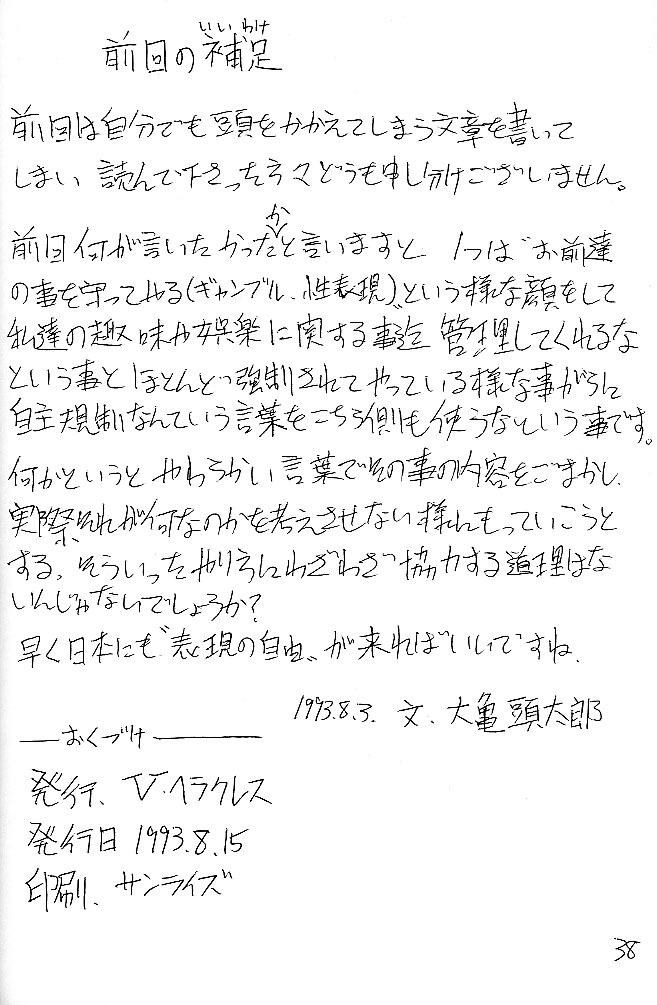 いいわけ
前回の補足
前回は自分でも頭をかかえてしまう文章を書いて
しまい 読んで下さった方々どうも申し分けございません。
か
前回何が言いたかったと言いますと 1つは“お前達
の事を守ってやる(ギャンブル、性表現)”という様な顔をして
私達の趣味や娯楽に関する事迄 管理してくれるな
という事と ほとんど強制されてやっている様な事がらに
自主規制なんていう言葉をこちら側も使うなという事です。
何かというと やわらかい言葉でその事の内容をごまかし、
実際それが何なのかを考えさせない様にもっていこうと
する、そういったやり方にわざわざ協力する道理はな
いんじゃないでしょうか?
早く日本にも“表現の自由”が来ればいいですね。
1993.8.3. 文、大亀頭太郎
—おくづけ———
発行、V.ヘラクレス
発行日 1993.8.15
印刷、サンライズ
38